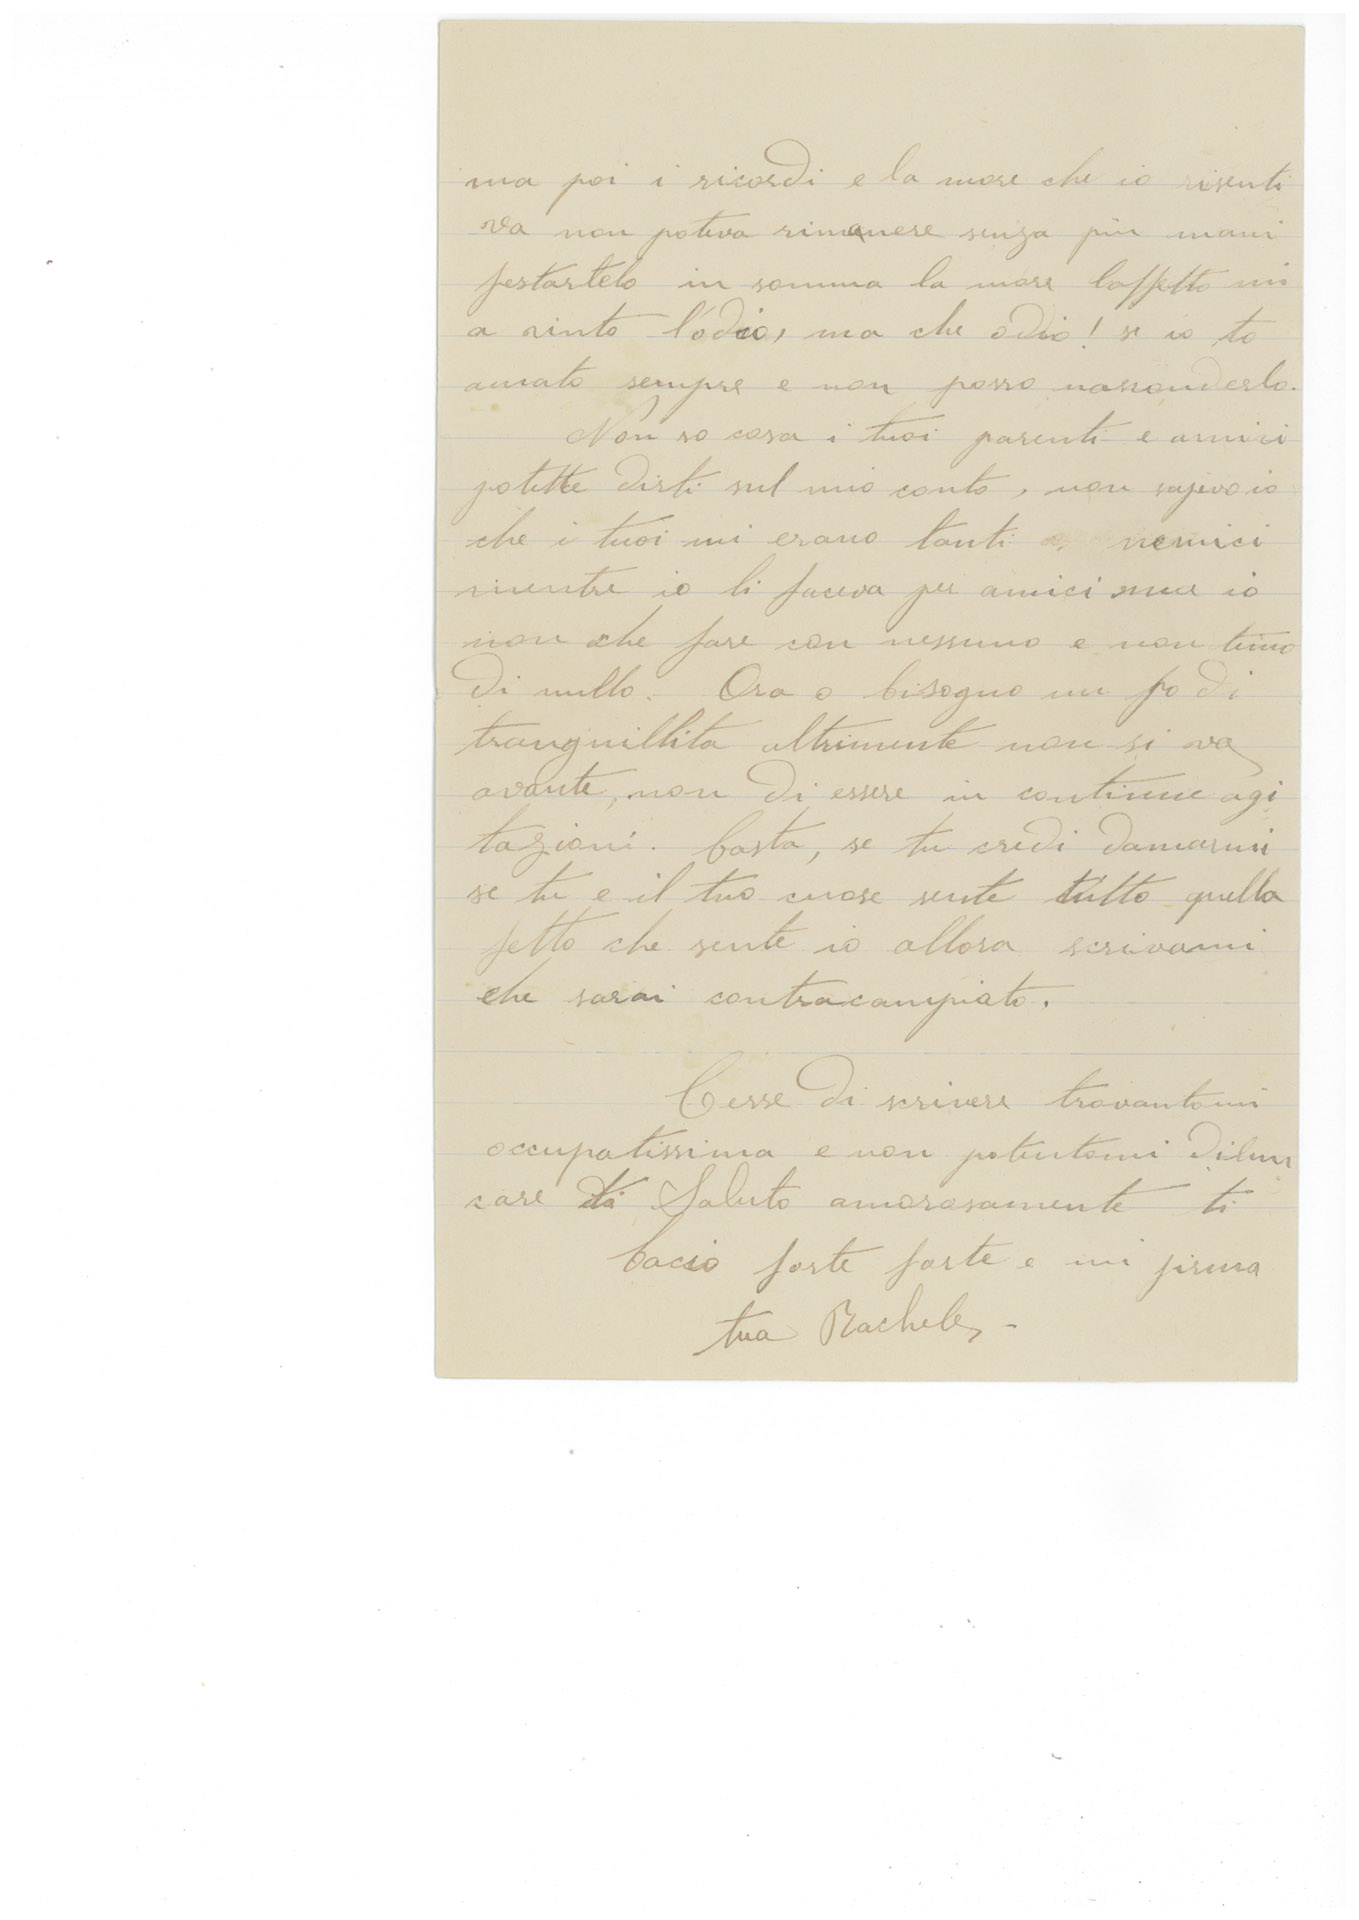 ma poi i ricordi e la more che io risenti
va non poteva rimanere senza più mani
festartelo in somma la more laffetto mi
a vinto l'odio, ma che odio! se io to
amato sempre e non posso nasconderlo.
Non so cosa i tuoi parenti e amici
potette dirti sul mio conto, non sapevo io
che i tuoi mi erano tanti nemici
mentre io li faceva per amici ma io
non che fare con nessuno e non timo
di nullo. Ora o bisogno un po di
tranguillita altrimente non si va
avante, non di essere in continue agi
tazioni. basta, se tu credi damarmi
se tu e il tuo cuore sente tutto quella
fetto che sente io allora scrivami
che sarai contracampiato.
Cesse di scrivere trovantomi
occupatissima e non potentomi dilun
care Saluto amorosamente ti
bacio forte forte e mi firma
tua Rachele, -